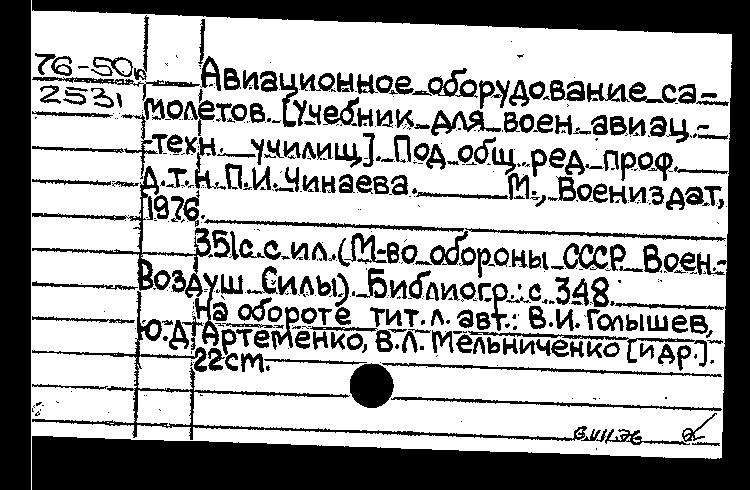 76-50к
2531
Авиационное оборудование са-
молетов. [Учебник для воен. авиац.-
-техн. училищ]. Под общ. ред. проф.
д.т.н. П.И. Чинаева. М., Воениздат,
1976.
351с. с ил. (М-во обороны СССР. Воен.-
Воздуш. Силы). Библиогр.: с. 348.
На обороте тит. л. авт.: В.И. Голышев,
Ю.Д. Артеменко, В.Л. Мельниченко [и др.].
22см.
6.VII.76